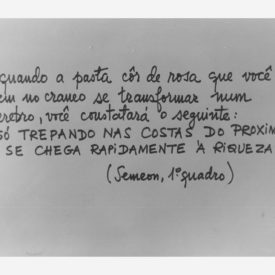 quando a pasta côr de rosa que você
em no craneo se transformar num
erebro, você constatará o seguinte:
SÓ TREPANDO NAS COSTAS DO PROXIM
SE CHEGA RAPIDAMENTE À RIQUEZA
(Semeon, 1º quadro)